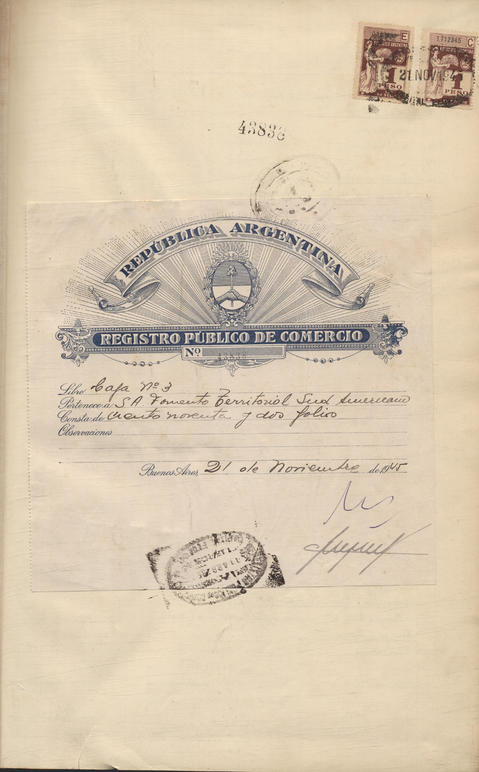 E
C
1712345
1
PESO
1
PESO
21 NOV 194
43836
REPÚBLICA ARGENTINA
REGISTRO PÚBLICO DE COMERCIO
Nº
Libro Caja Nº 3
Pertenece a SA Fomento Territorial Sud Americano
Consta de ciento noventa y dos folios
Observaciones
Buenos Aires 21 de Noviembre de 1945